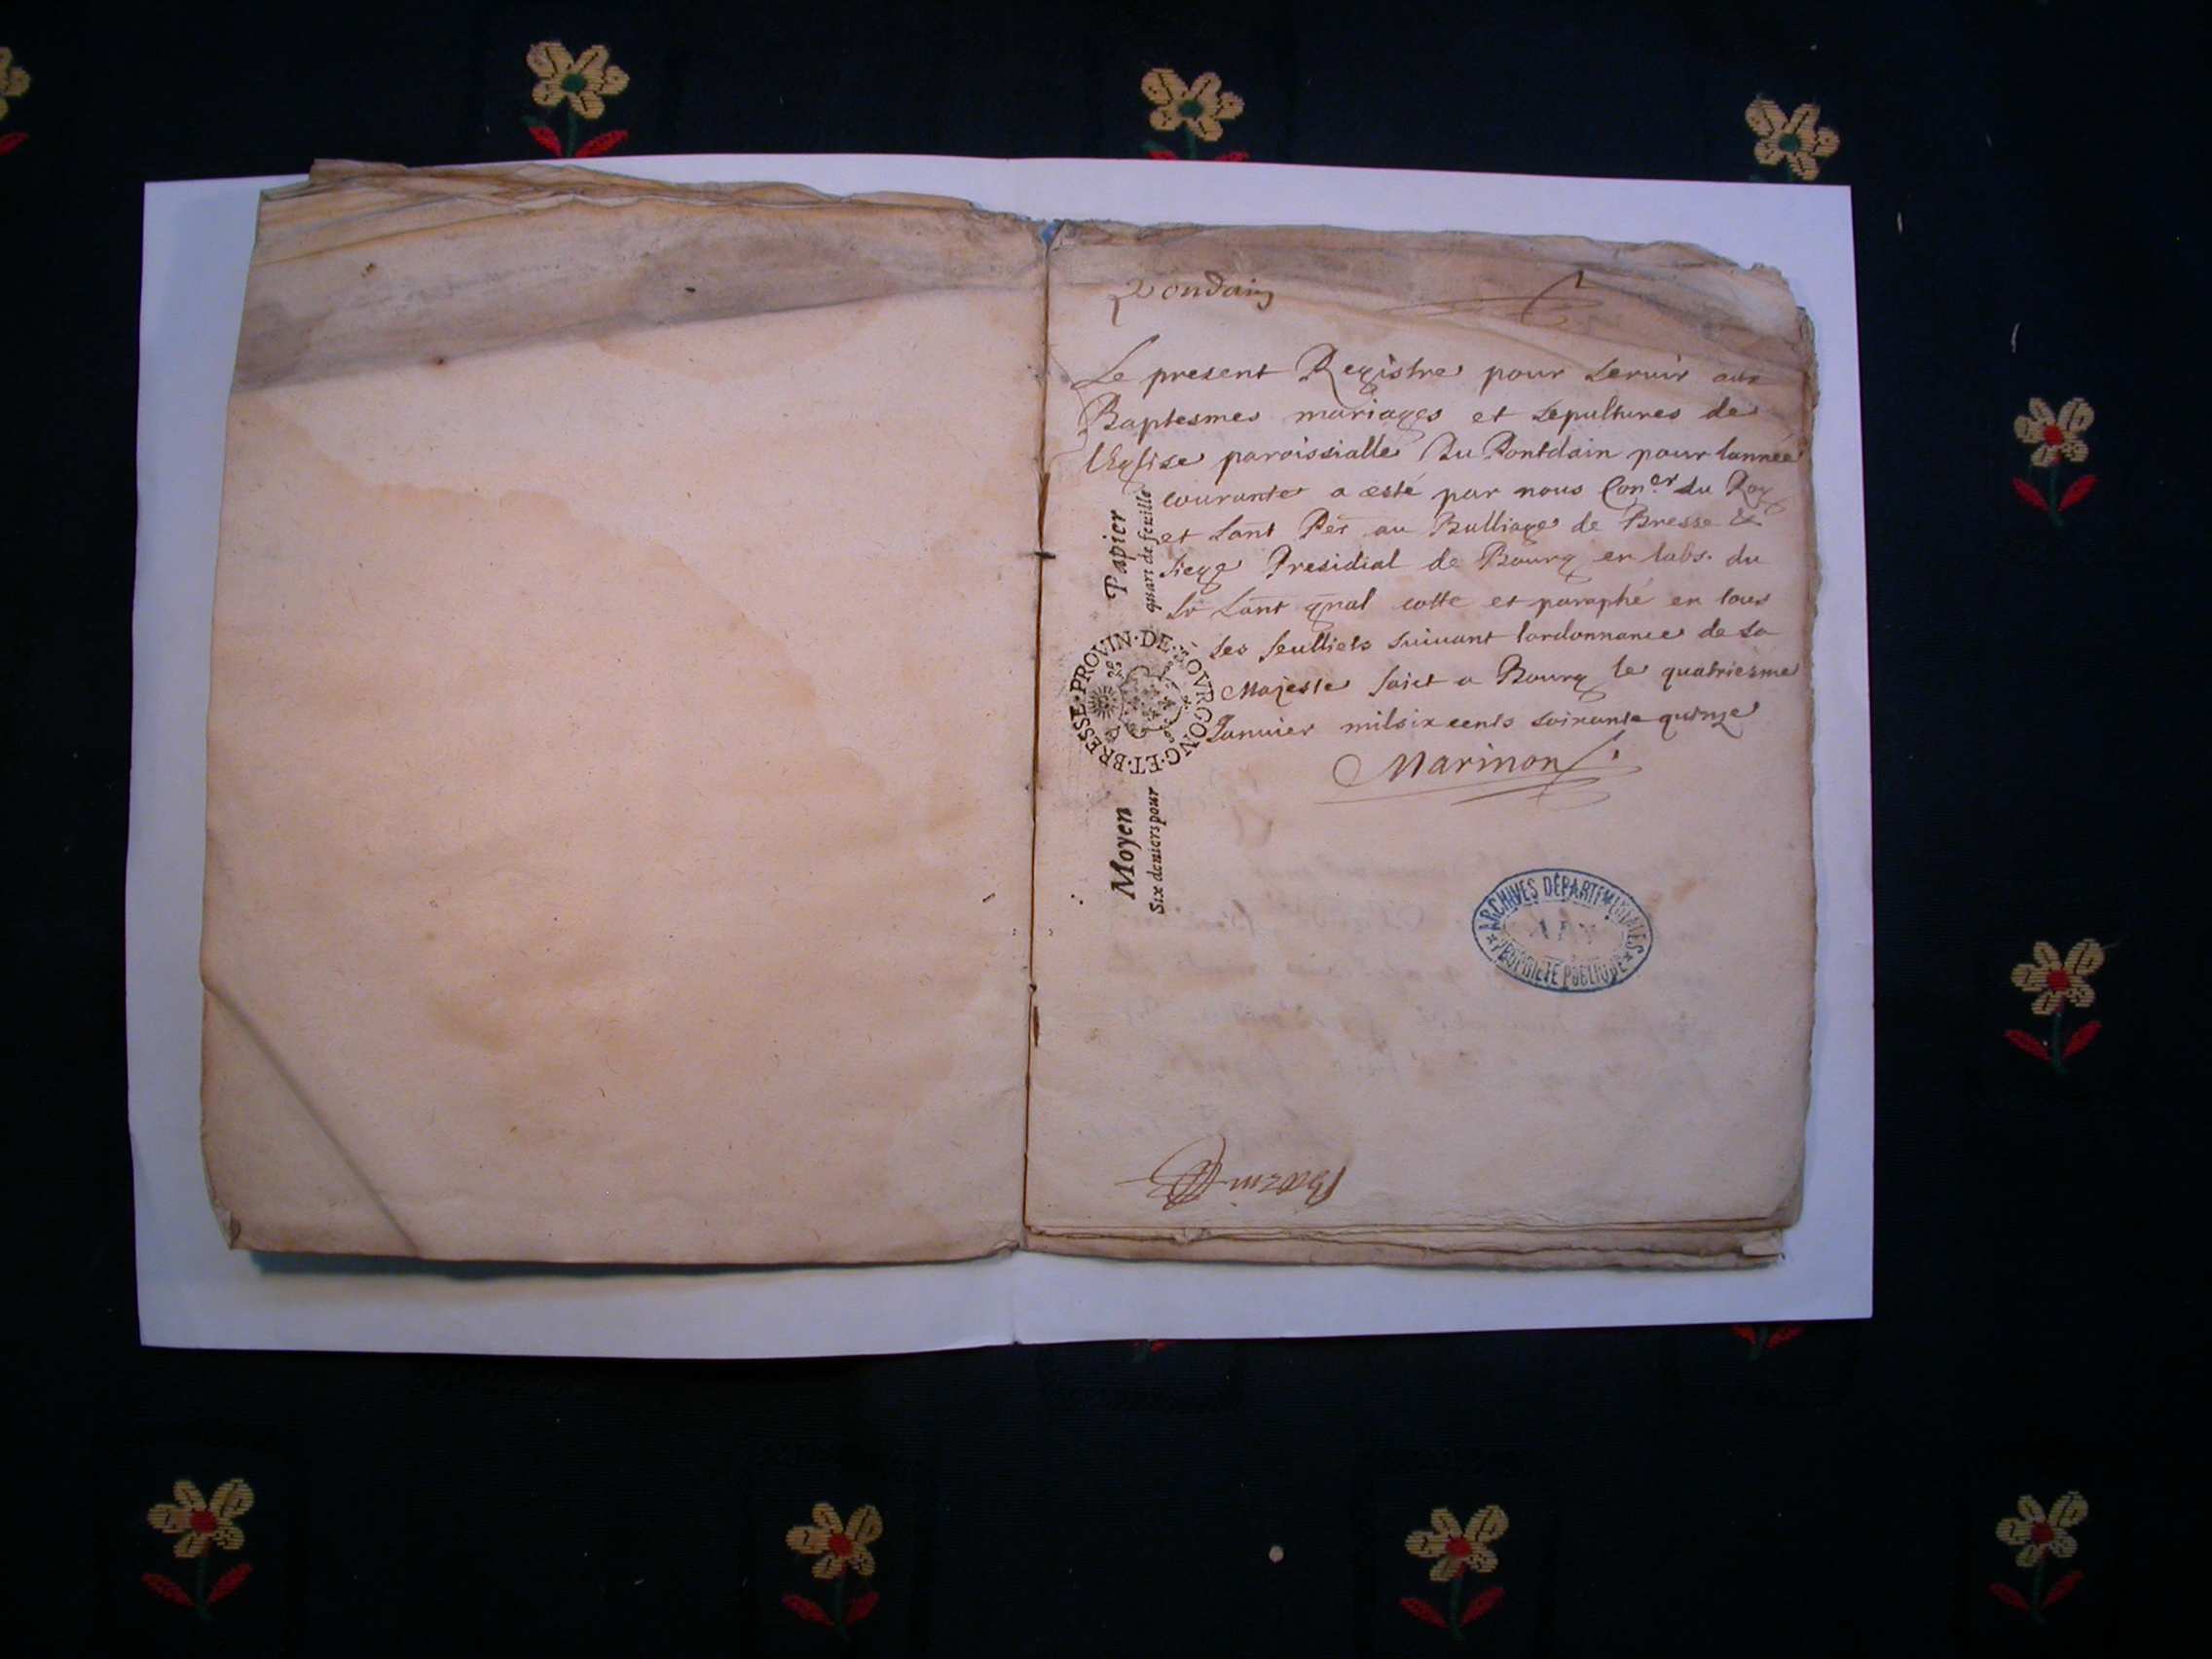 Pondain
Le present Registre pour servir aux
Baptesmes mariages et sepultures de
l'Eglise paroissialle Du Pontdain pour lannée
courante a esté par nous Con.er du Roy
et Lant Per au Balliage de Bresse &
siege Presidial de Bourg en labs. du
Sr Lant gnal cotte et paraphé en tous
ses feulliets suivant lordonnance de sa
Majeste faict a Bourg le quatriesme
Janvier mil six cents soixante quinze
Marinon
Moyen Papier
Six deniers pour quart de feuille
PROVIN·DE·BOVRGONG·ET·BRESSE·
ARCHIVES DÉPARTEMENTALES
AIN
PROPRIÉTÉ PUBLIQUE
Bozin